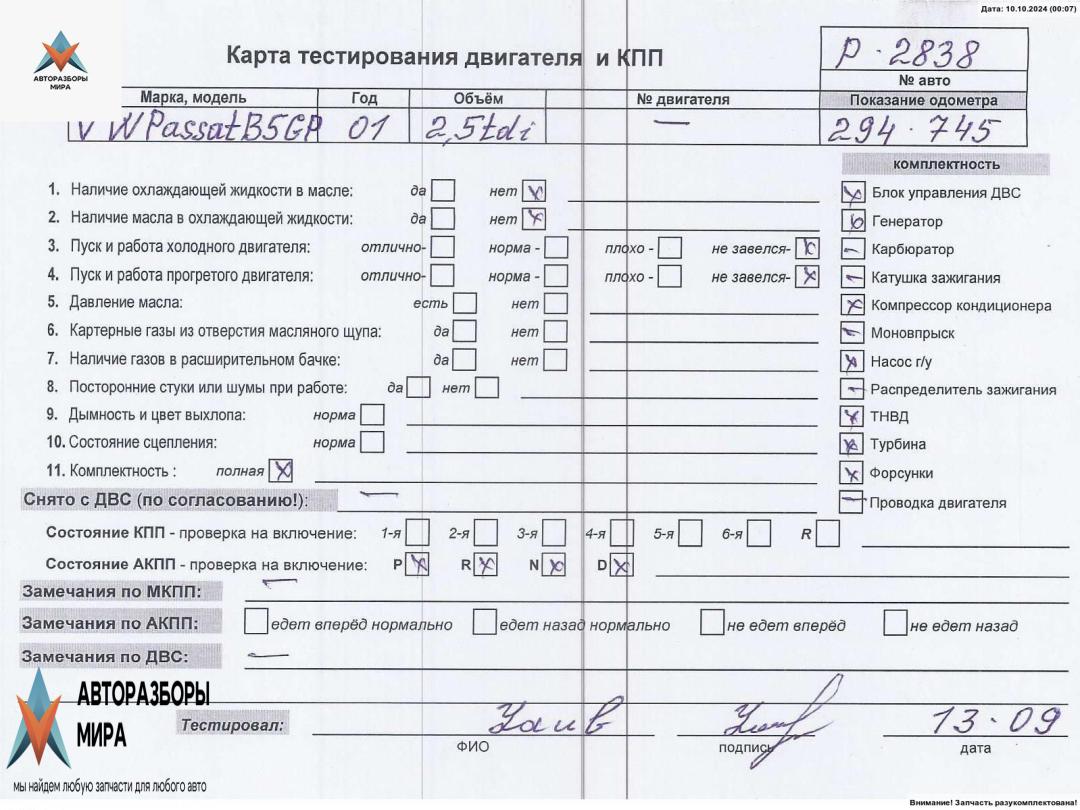 Дата: 10.10.2024 (00:07)
АВТОРАЗБОРЫ
МИРА
Карта тестирования двигателя и КПП
Р-2838
№ авто
Марка, модель Год Объём № двигателя Показание одометра
VW Passat B5GP 01 2,5tdi — 294.745
комплектность
1. Наличие охлаждающей жидкости в масле: да нет
2. Наличие масла в охлаждающей жидкости: да нет
3. Пуск и работа холодного двигателя: отлично- норма - плохо - не завелся-
4. Пуск и работа прогретого двигателя: отлично- норма - плохо - не завелся-
5. Давление масла: есть нет
6. Картерные газы из отверстия масляного щупа: да нет
7. Наличие газов в расширительном бачке: да нет
8. Посторонние стуки или шумы при работе: да нет
9. Дымность и цвет выхлопа: норма
10. Состояние сцепления: норма
11. Комплектность : полная
Блок управления ДВС
Генератор
Карбюратор
Катушка зажигания
Компрессор кондиционера
Моновпрыск
Насос г/у
Распределитель зажигания
ТНВД
Турбина
Форсунки
Проводка двигателя
Снято с ДВС (по согласованию!): —
Состояние КПП - проверка на включение: 1-я 2-я 3-я 4-я 5-я 6-я R
Состояние АКПП - проверка на включение: P R N D
Замечания по МКПП: —
Замечания по АКПП: едет вперёд нормально едет назад нормально не едет вперёд не едет назад
Замечания по ДВС: —
АВТОРАЗБОРЫ
МИРА
мы найдем любую запчасти для любого авто
Тестировал: 13-09
ФИО подпись дата
Внимание! Запчасть разукомплектована!